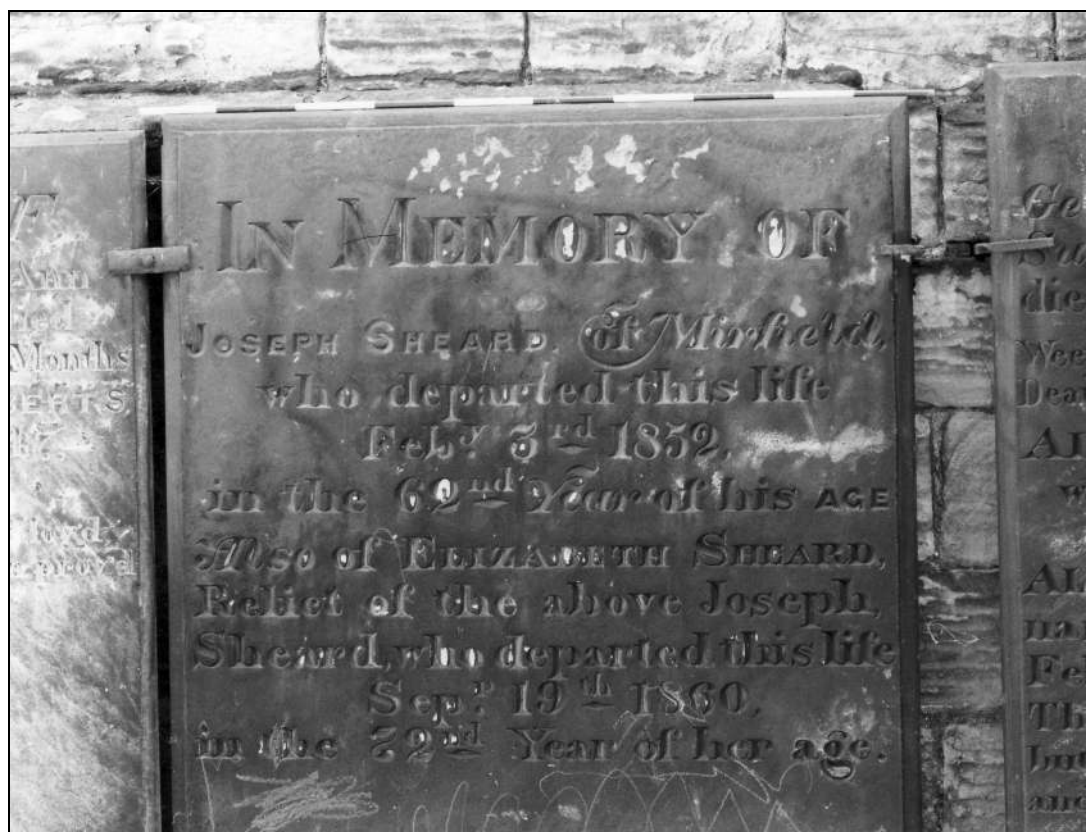 Ann
Months
IN MEMORY OF
JOSEPH SHEARD, of Mirfield,
who departed this life
Feby. 3rd 1852,
in the 62nd Year of his AGE
Also of ELIZABETH SHEARD,
Relict of the above Joseph,
Sheard, who departed this life
Sepr. 19th 1860,
in the 72nd Year of her age.
Ge
Su
die
Wee
Dea
Al
w
Al
na
Fe
Th
bu
and